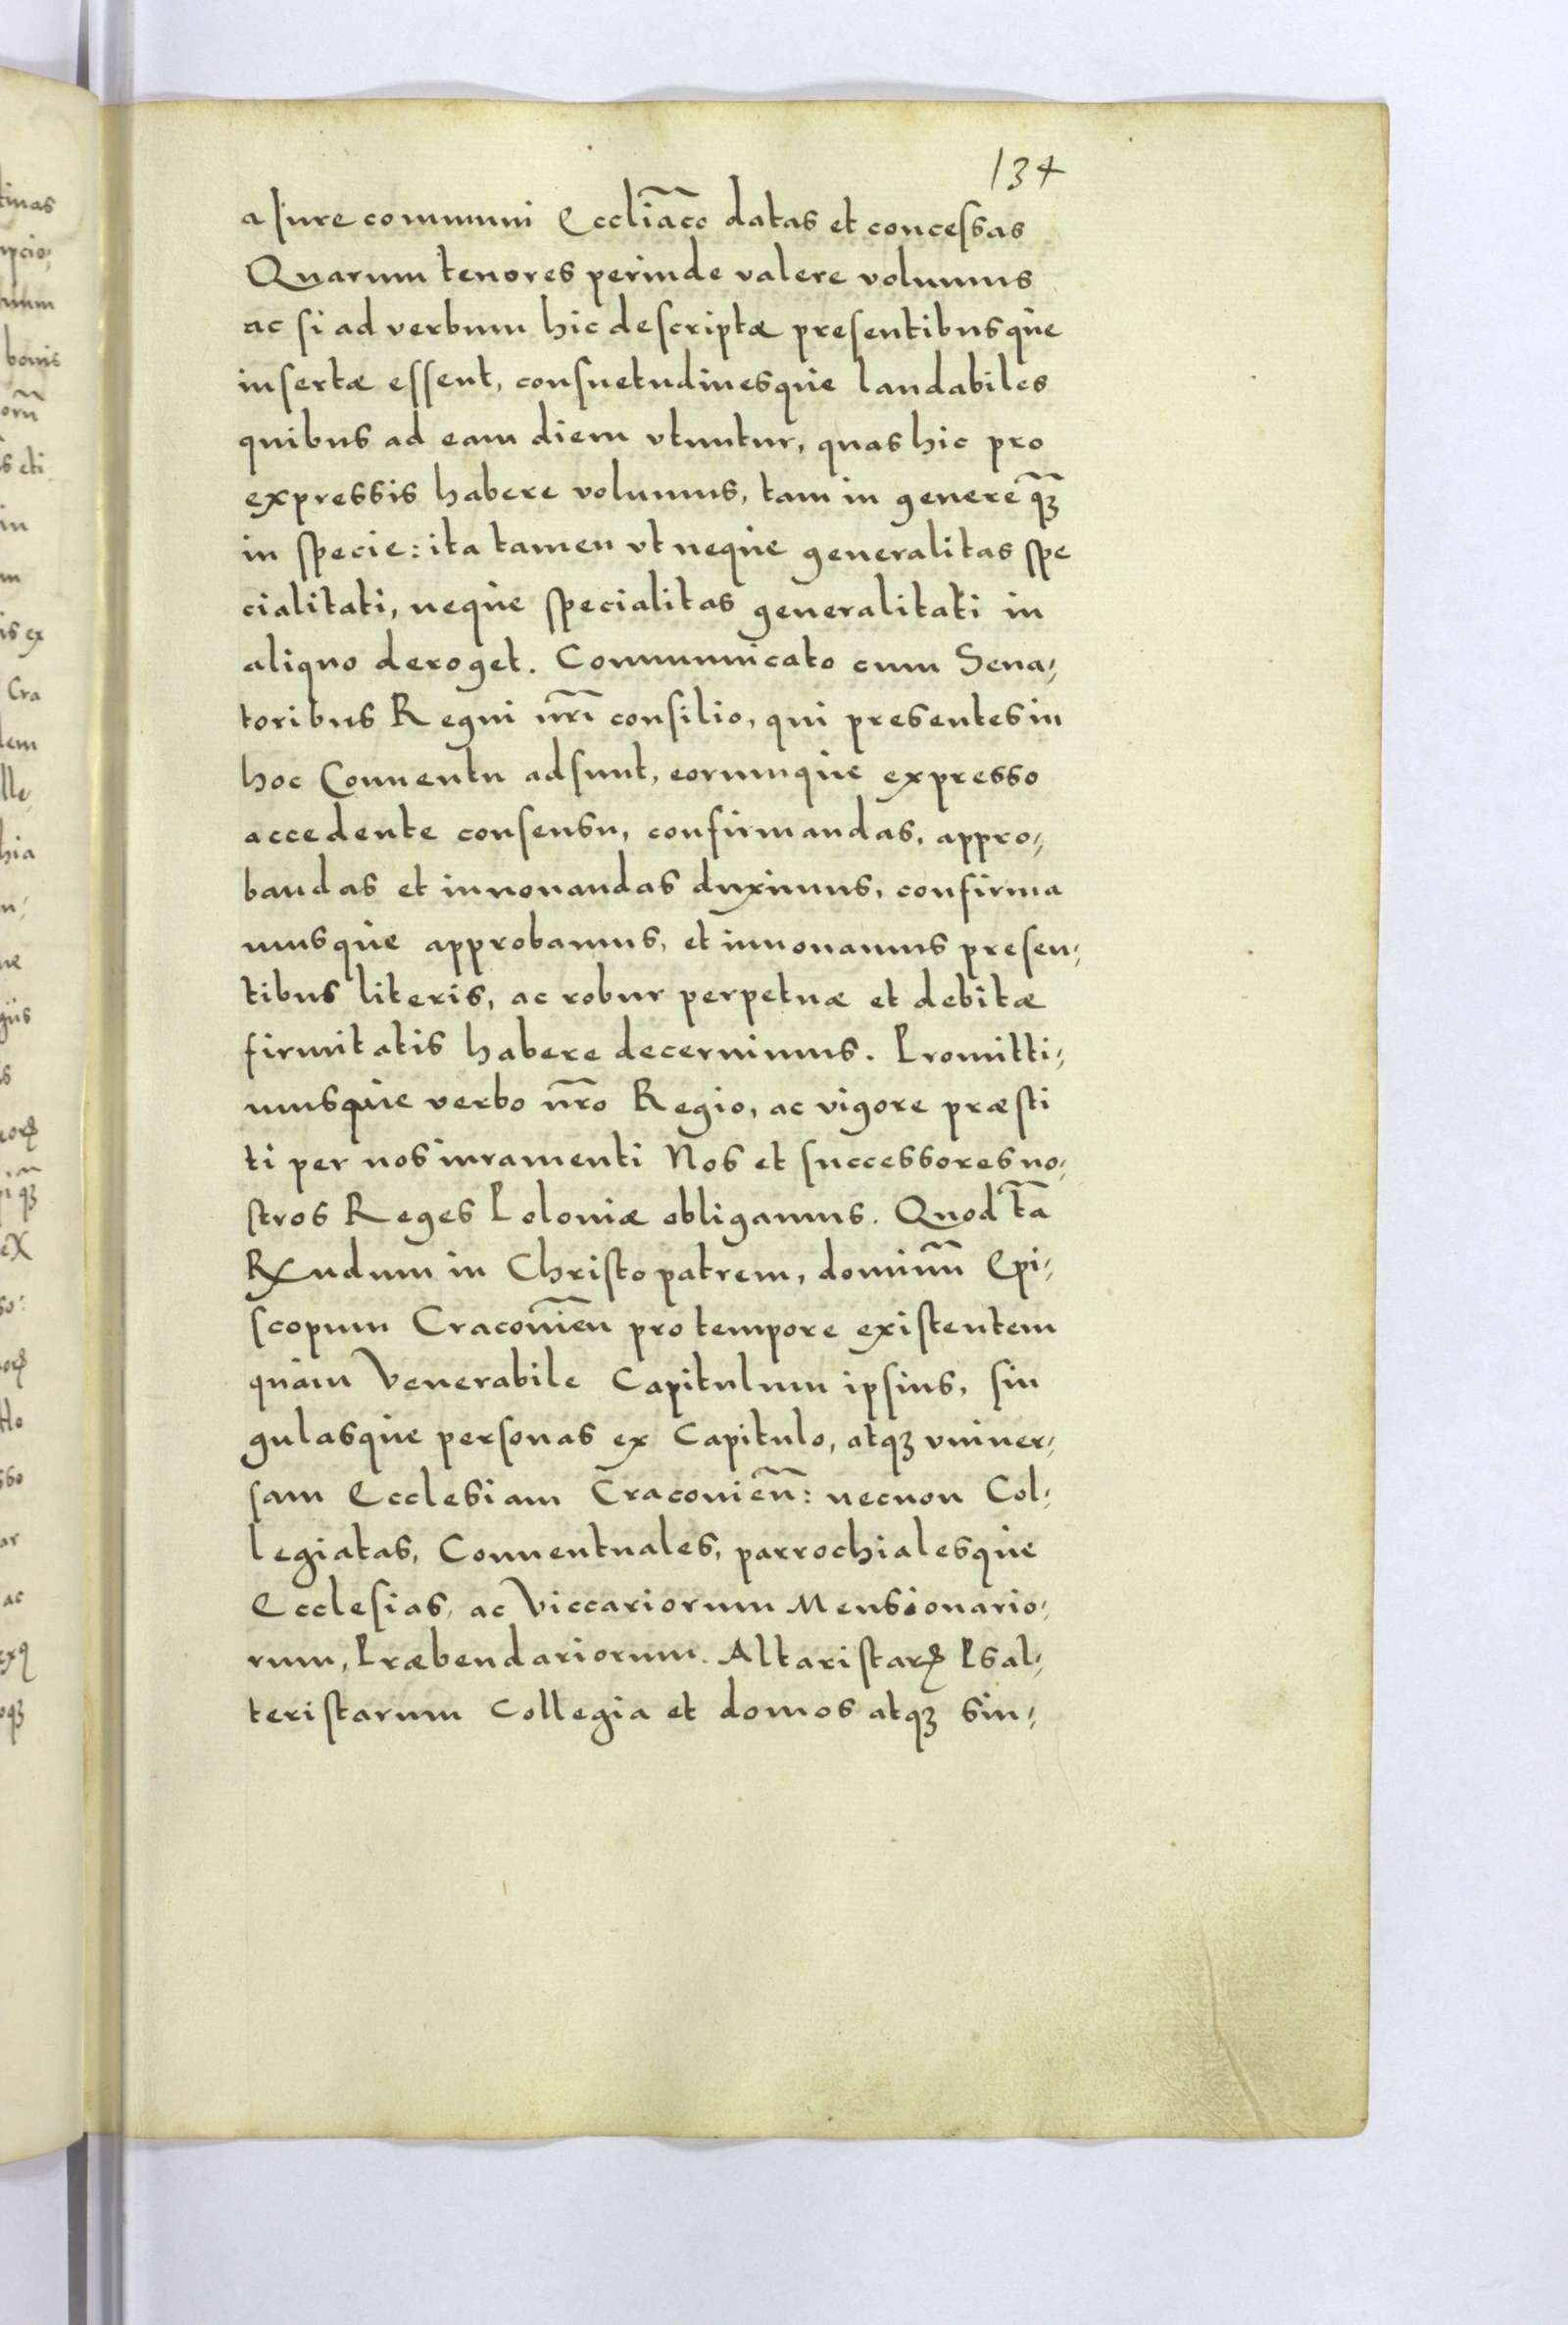 134
a Iure communi Eccliãco datas et concessas
Quarum tenores perinde valere volumus
ac si ad verbum hic descriptæ presentibusque
insertæ essent, consuetudinesque laudabiles
quibus ad eam diem vtuntur, quas hic pro
expressis habere volumus, tam in genere q̃ꝫ
in specie: ita tamen vt neque generalitas spe
cialitati, neque specialitas generalitati in
aliquo deroget. Communicato cum Sena,
toribus Regni nr̃i consilio, qui presentes in
hoc Conuentu adsunt, eorumque expresso
accedente consensu, confirmandas, appro,
bandas et innouandas duximus, confirma
musque approbamus, et innouamus presen,
tibus literis, ac robur perpetuæ et debitæ
firmitatis habere decernimus. Promitti,
musque verbo nr̃o Regio, ac vigore præsti
ti per nos iuramenti Nos et successores no,
stros Reges Poloniæ obligamus. Quod tã
Rxndum in Christo patrem, dominũ Epi,
scopum Cracoviẽn pro tempore existentem
quàm Venerabile Capitulum ipsius, sin
gulasque personas ex Capitulo, atqꝫ vniuer,
sam Ecclesiam Cracovieñ: necnon Col,
legiatas, Conuentuales, parrochialesque
Ecclesias, ac Viccariorum Mensionario,
rum, Præbendariorum. Altaristarꝝ Psal,
teristarum Collegia et domos atqꝫ sin,
tinas
ipcio,
bonis
orũ
s eti
in
m
is ex
Cra
dem
lle,
hia
n,
ne
giis
s
qꝫ
so:
tto
sso
ar
ac